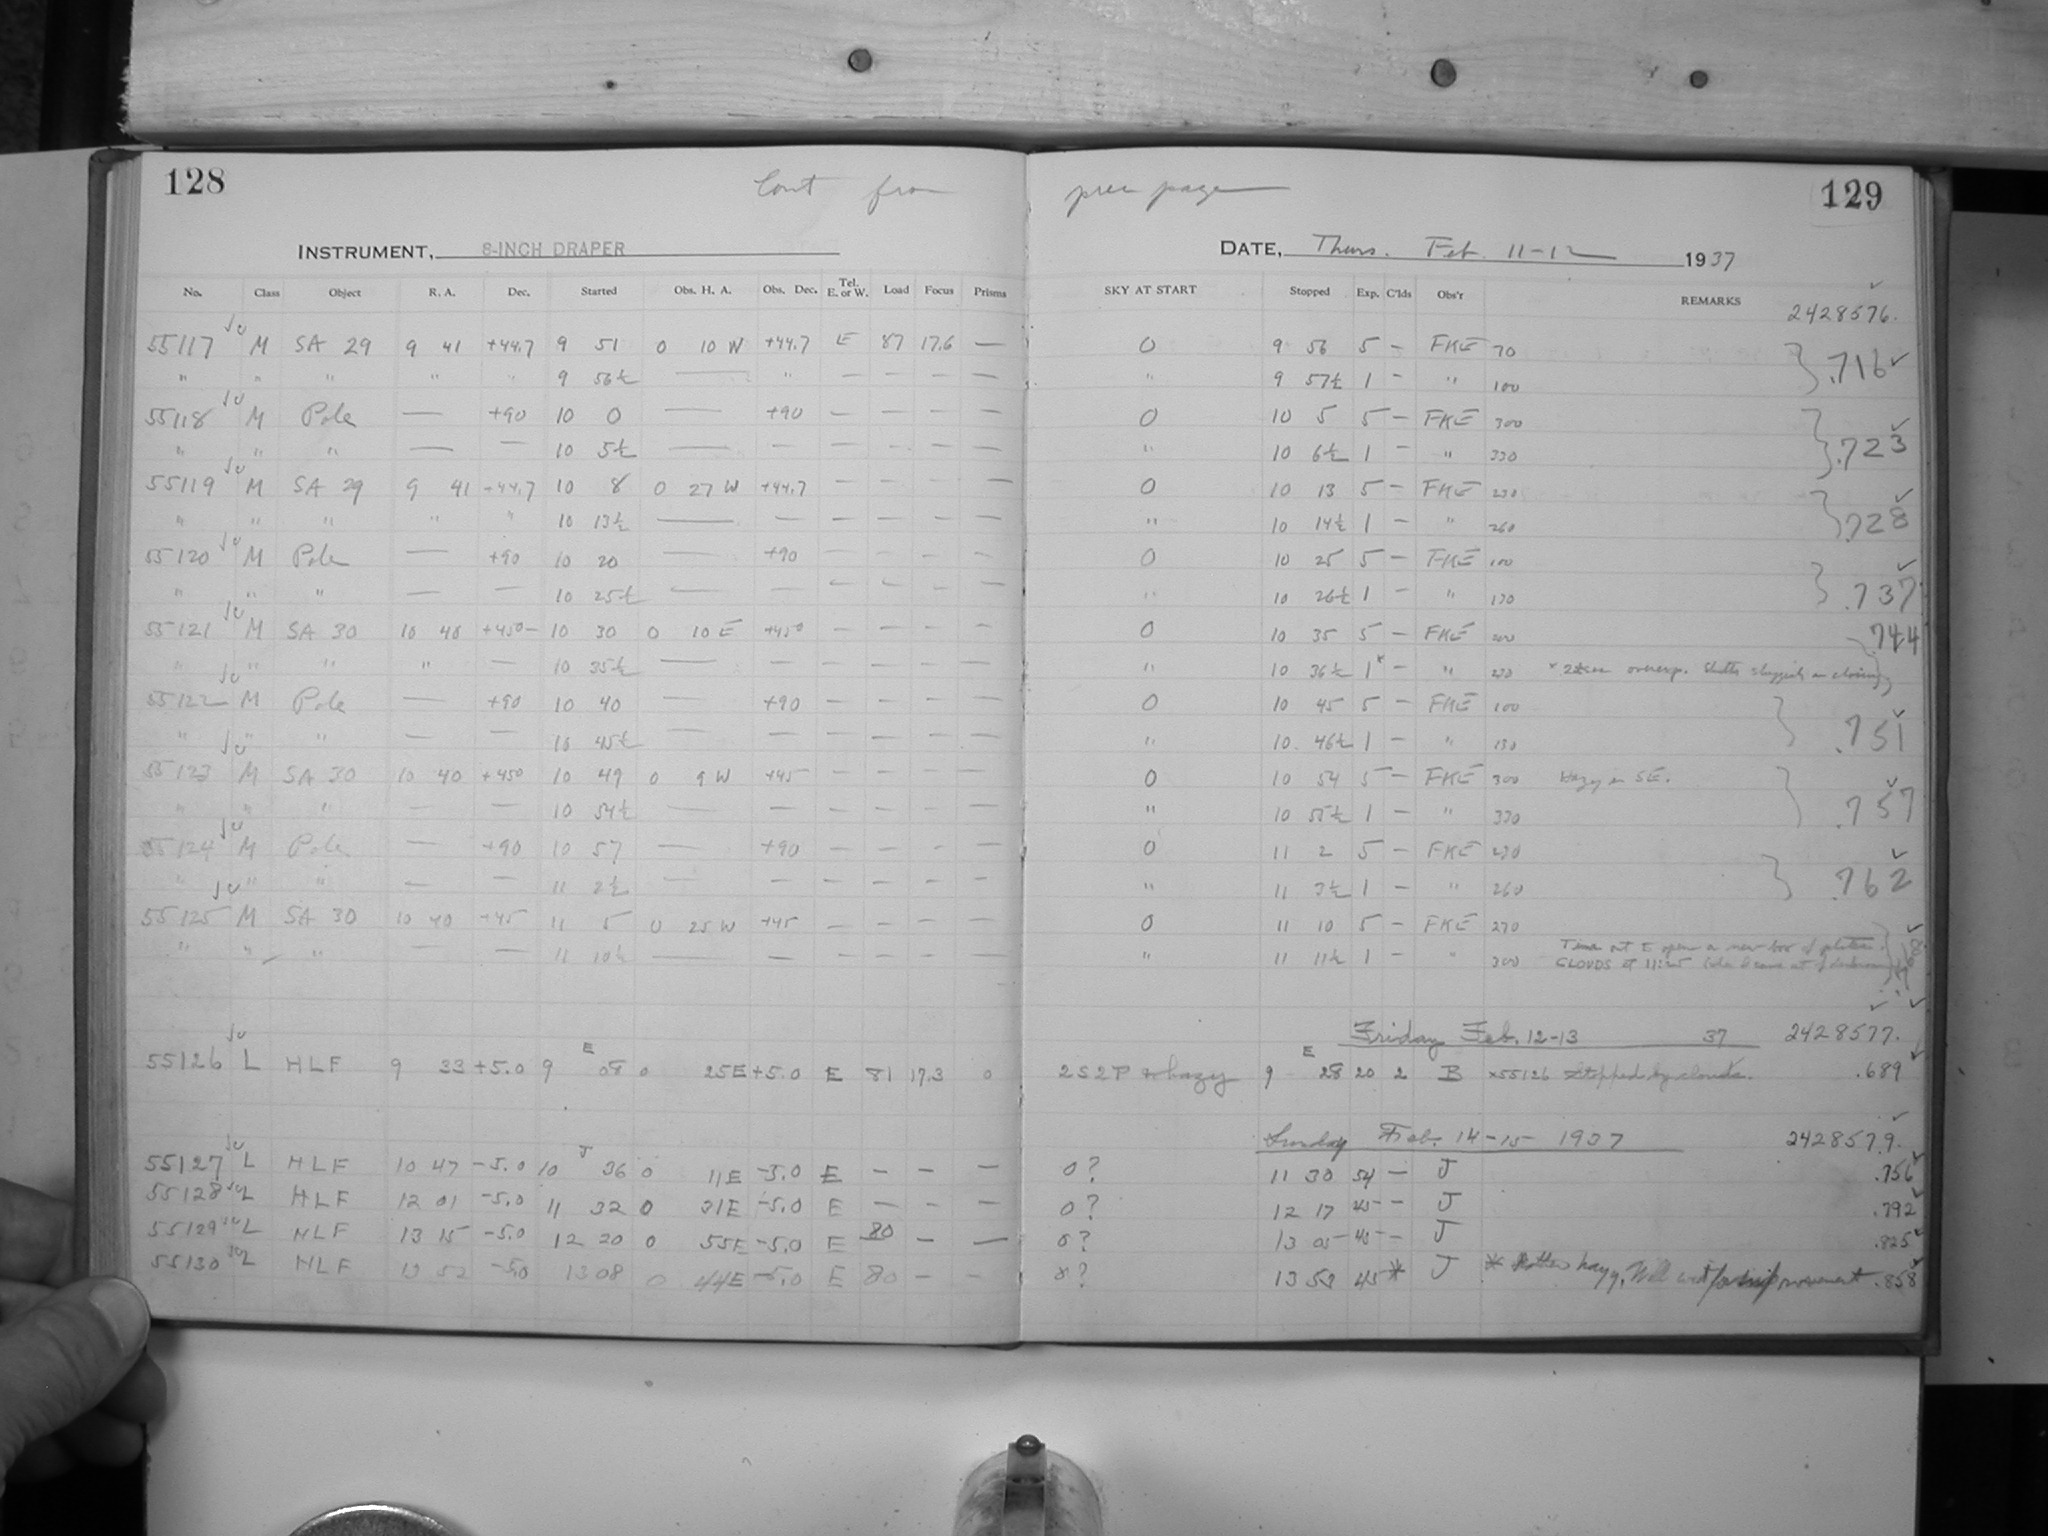 128 Cont from prec page 129
INSTRUMENT, 8-INCH DRAPER DATE, Thurs. Feb. 11-12 1937
No. Class Object R. A. Dec. Started Obs. H. A. Obs. Dec. Tel. E. or W. Load Focus Prisms SKY AT START Stopped Exp. C'lds Obs'r REMARKS
2428576.
55117 M SA 29 9 41 +44.7 9 51 0 10 W +44.7 E 87 17.6 — 0 9 56 5 — FKE 70 .716
" " " " " 9 56½ — " — — — — " 9 57½ 1 — " 100
55118 M Pole — +90 10 0 — +90 — — — — 0 10 5 5 — FKE 300 .723
" " " — — 10 5½ — — — — — — " 10 6½ 1 — " 330
55119 M SA 29 9 41 +44.7 10 8 0 27 W +44.7 — — — — 0 10 13 5 — FKE 230 .728
" " " " " 10 13½ — — — — — — " 10 14½ 1 — " 260
55120 M Pole — +90 10 20 — +90 — — — — 0 10 25 5 — FKE 100 .737
" " " — — 10 25½ — — — — — — " 10 26½ 1 — " 130
55121 M SA 30 10 40 +45.0 10 30 0 10 E +45.0 — — — — 0 10 35 5 — FKE 200 .744
" " " " — 10 35½ — — — — — — " 10 36½ 1* — " 230 * overexp. Shutter sluggish in closing
55122 M Pole — +90 10 40 — +90 — — — — 0 10 45 5 — FKE 100 .751
" " " — — 10 45½ — — — — — — " 10 46½ 1 — " 130
55123 M SA 30 10 40 +45.0 10 49 0 9 W +45 — — — — 0 10 54 5 — FKE 300 Hazy in SE. .757
" " " — — 10 54½ — — — — — — " 10 55½ 1 — " 330
55124 M Pole — +90 10 57 — +90 — — — — 0 11 2 5 — FKE 230 .762
" " " — — 11 2½ — — — — — — " 11 3½ 1 — " 260
55125 M SA 30 10 40 +45 11 5 0 25 W +45 — — — — 0 11 10 5 — FKE 270
" " " — — 11 10½ — — — — — — " 11 11½ 1 — " 300 Time out to open a new box of plates.
CLOUDS at 11:25
Friday Feb. 12-13 37 2428577.
55126 L HLF 9 33 +5.0 9 E 08 0 25E +5.0 E 81 17.3 0 2S2P + hazy 9 E 28 20 2 B x55126 stopped by clouds. .689
Sunday Feb. 14-15 1937 2428579.
55127 L HLF 10 47 -5.0 10 J 36 0 11E -5.0 E — — — 0? 11 30 54 — J .756
55128 L HLF 12 01 -5.0 11 32 0 31E -5.0 E — — — 0? 12 17 45 — J .792
55129 L HLF 13 15 -5.0 12 20 0 55E -5.0 E 80 — — 0? 13 05 45 — J .825
55130 L HLF 13 52 -5.0 13 08 0 44E -5.0 E 80 — — 0? 13 53 45* J * hazy. Will wait for improvement .858